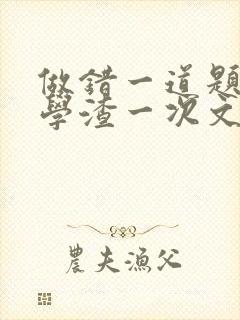 做錯一道題
學渣一次文
農夫漁父